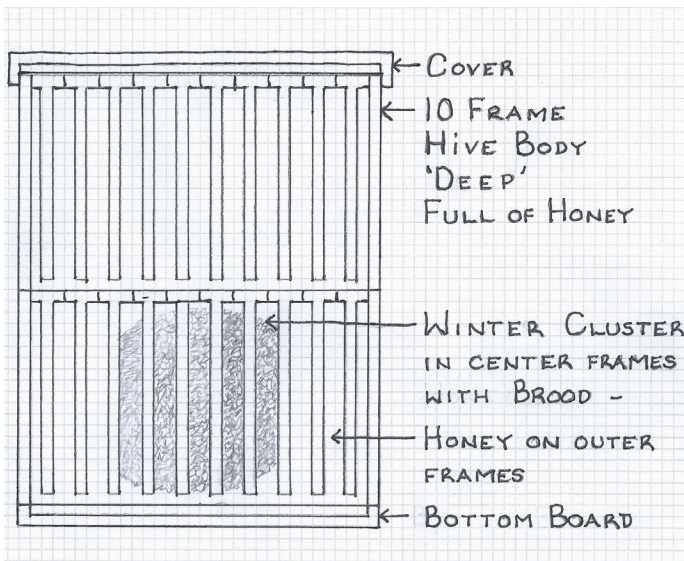 COVER
10 FRAME
HIVE BODY
'DEEP'
FULL OF HONEY
WINTER CLUSTER
IN CENTER FRAMES
WITH BROOD -
HONEY ON OUTER
FRAMES
BOTTOM BOARD